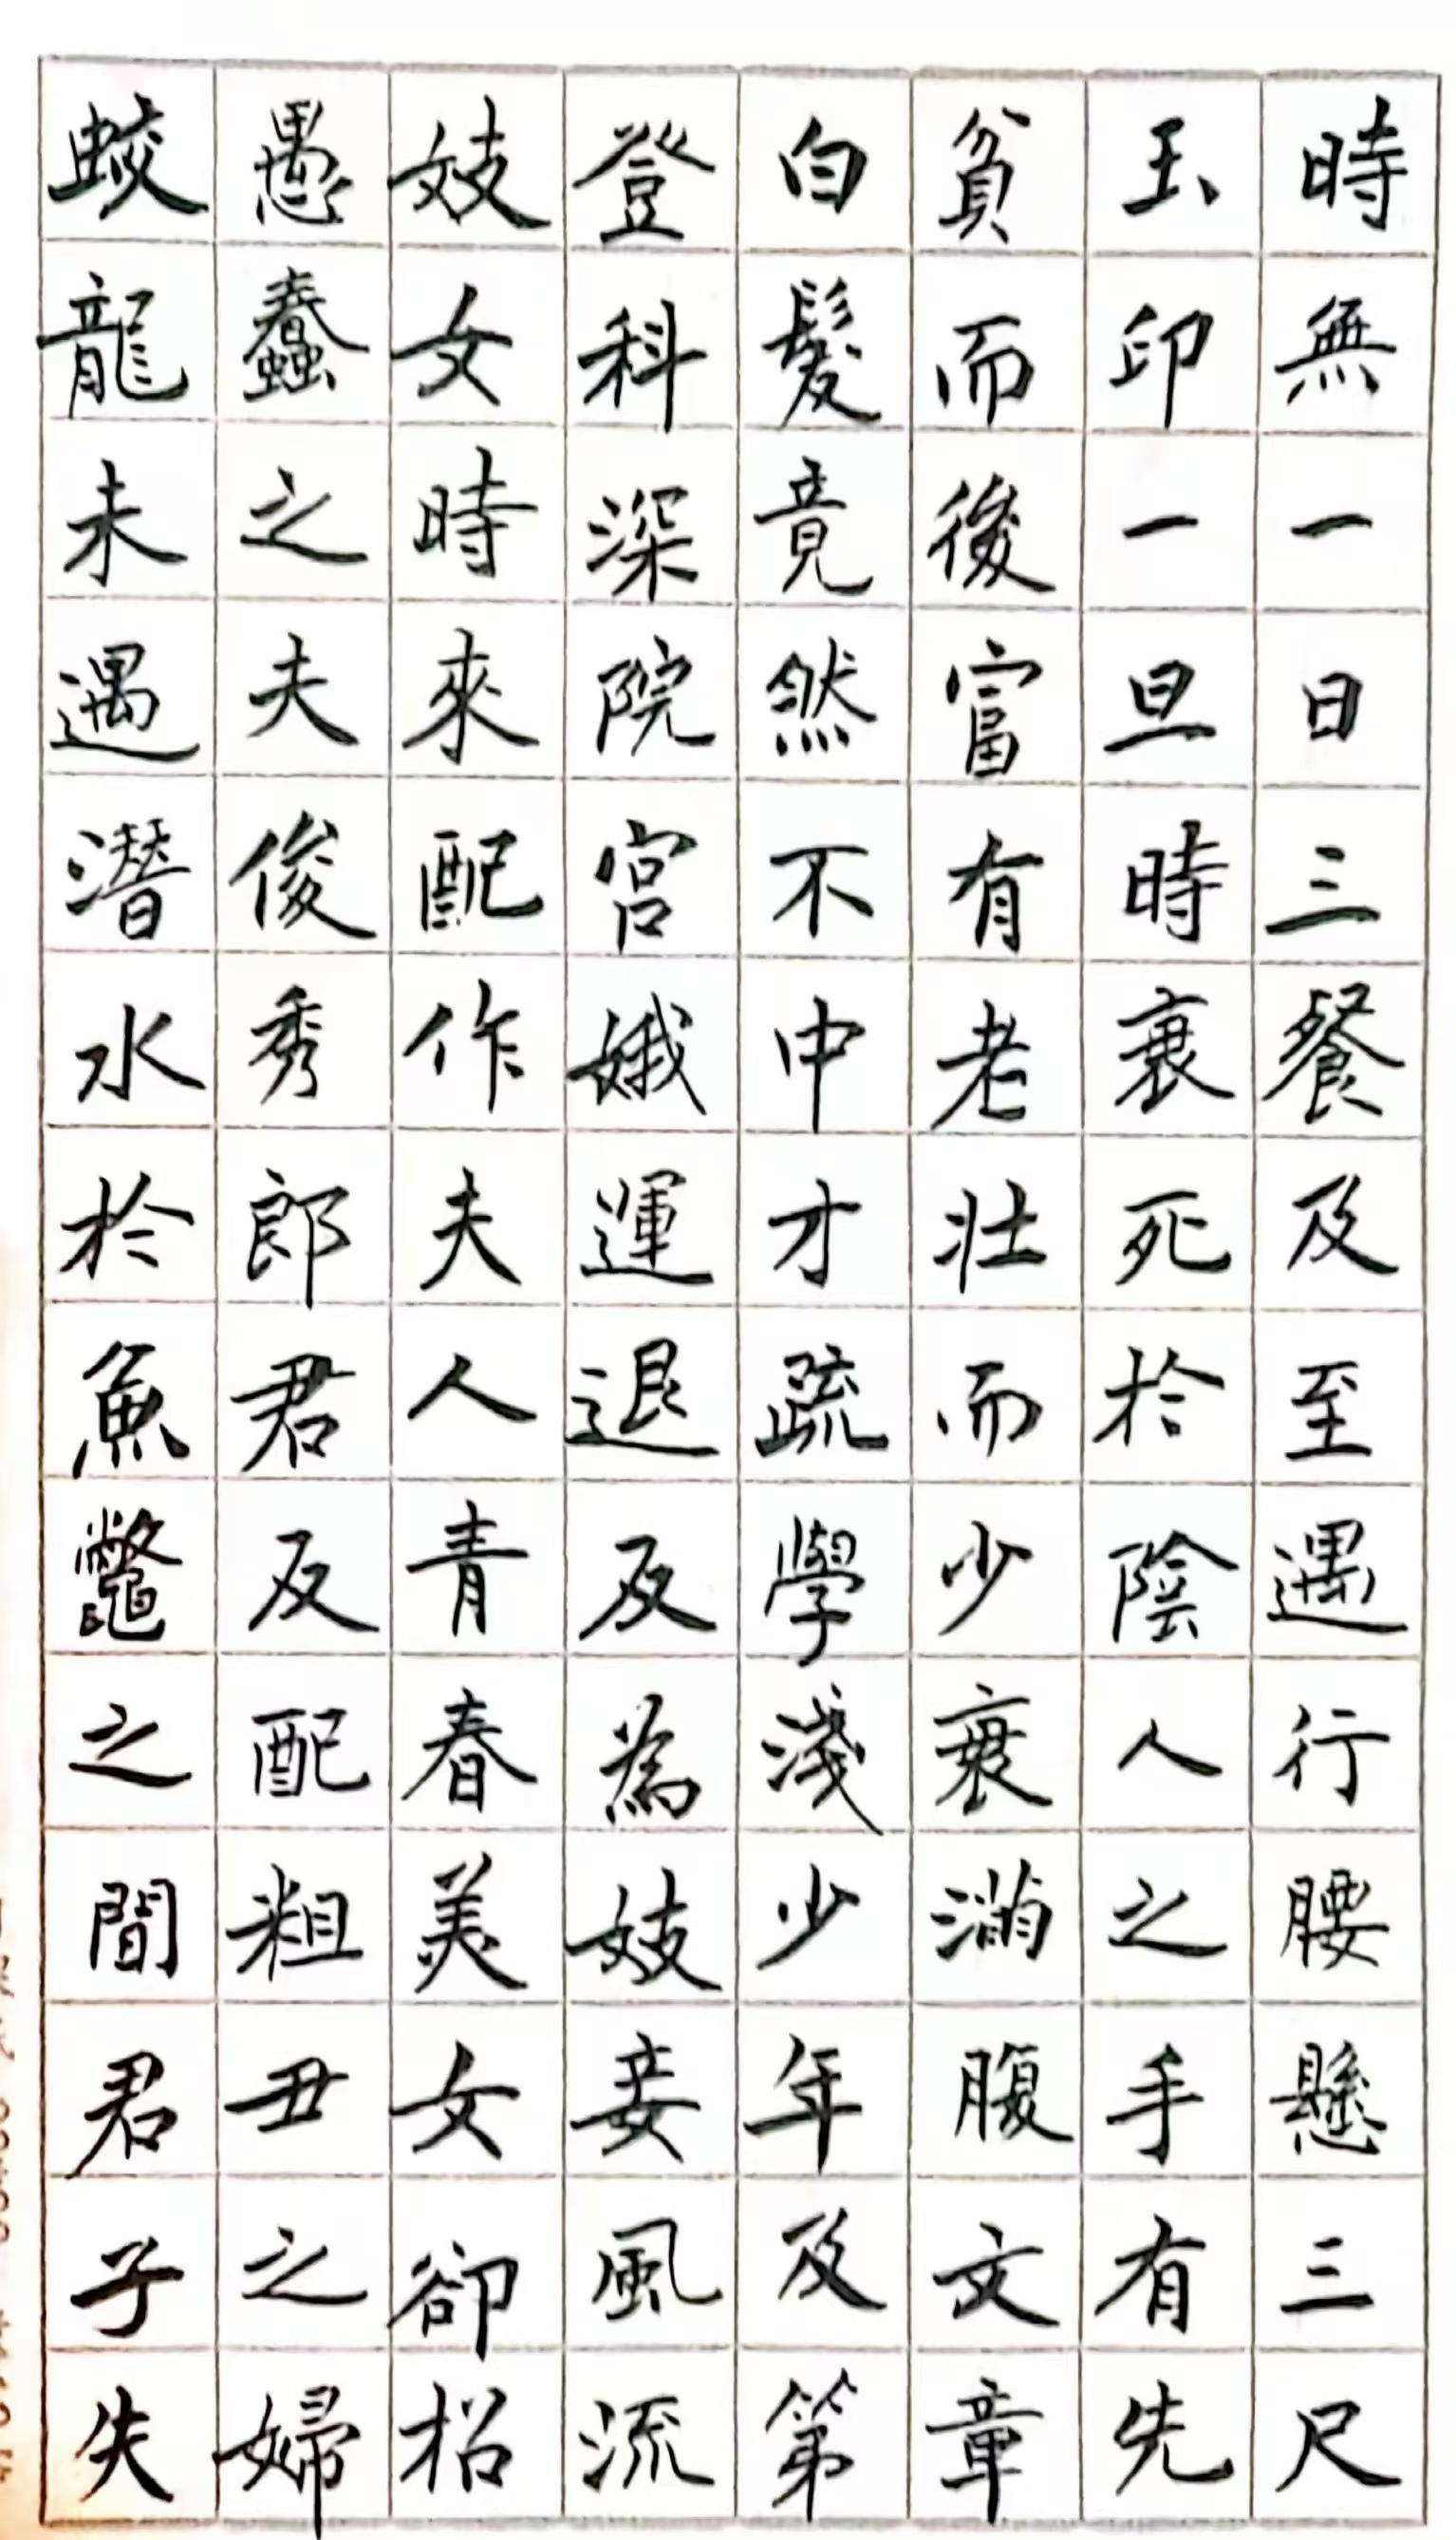 時無一日三餐及至遇行腰懸三尺
玉印一旦時衰死於陰人之手有先
貧而後富有老壯而少衰滿腹文章
白髮竟然不中才疏學淺少年及第
登科深院宮娥運退反為妓妾風流
妓女時來配作夫人青春美女卻招
愚蠢之夫俊秀郎君反配粗丑之婦
蛟龍未遇潛水於魚鼈之間君子失